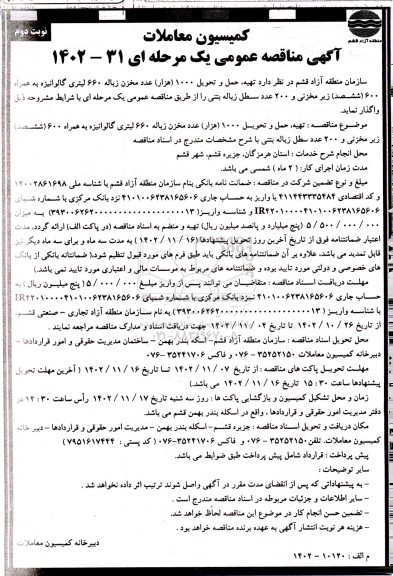 نوبت دوم
کمیسیون معاملات
منطقه آزاد قشم
آگهی مناقصه عمومی یک مرحله ای ۳۱ – ۱۴۰۲
سازمان منطقه آزاد قشم در نظر دارد تهیه، حمل و تحویل ۱۰۰۰ (هزار) عدد مخزن زباله ۶۶۰ لیتری گالوانیزه به همراه
۶۰۰ (ششصد) زیر مخزنی و ۲۰۰ عدد سطل زباله بتنی را از طریق مناقصه عمومی یک مرحله ای با شرایط مشروحه ذیل
واگذار نماید.
موضوع مناقصه : تهیه، حمل و تحویل ۱۰۰۰ (هزار) عدد مخزن زباله ۶۶۰ لیتری گالوانیزه به همراه ۶۰۰ (ششصد)
زیر مخزنی و ۲۰۰ عدد سطل زباله بتنی با شرح مشخصات مندرج در اسناد مناقصه
محل انجام شرح خدمات : استان هرمزگان، جزیره قشم، شهر قشم
مدت زمان اجرای کار: ( ۲ ماه ) شمسی می باشد.
مبلغ و نوع تضمین شرکت در مناقصه : ضمانت نامه بانکی بنام سازمان منطقه آزاد قشم با شناسه ملی ۱۴۰۰۲۸۶۱۶۹۸
و کد اقتصادی ۴۱۱۴۴۳۳۳۵۴۸۴ یا واریز به حساب جاری ۴۱۰۱۰۰۶۲۳۸۱۶۵۶۰۶ نزد بانک مرکزی با شماره شبای
به میزان
۵/۵۰۰/۰۰۰/۰۰۰ (پنج میلیارد و پانصد میلیون ریال) تهیه و منضم به اسناد مناقصه (در پاکت الف) ارائه گردد. مدت
اعتبار ضمانتنامه فوق از تاریخ آخرین روز تحویل پیشنهادها (۱۶ / ۱۱ / ۱۴۰۲ ) به مدت سه ماه و برای سه ماه دیگر نیز
قابل تمدید می باشد، علاوه بر آن ضمانتنامه های بانکی باید طبق فرم های مورد قبول تنظیم شود.( ضمانتنامه بانکی از بانک
های خصوصی و دولتی مورد تایید بوده و ضمانتنامه های مربوط به موسسات مالی و اعتباری مورد تایید نمی باشد.)
مهلت دریافت اسناد مناقصه : متقاضیان می توانند پس از واریز مبلغ ۵/۰۰۰/۰۰۰ (پنج میلیون ریال) به
حساب جاری ۴۱۰۱۰۰۶۲۳۸۱۶۵۶۰۶ نزد بانک مرکزی با شماره شبای
به نام سازمان منطقه آزاد تجاری – صنعتی قشم،
از تاریخ ۲۶ / ۱۰ / ۱۴۰۲ تا تاریخ ۰۴ / ۱۱ / ۱۴۰۲ جهت دریافت اسناد و مدارک مناقصه مراجعه نمایند .
محل تحویل اسناد مناقصه : سازمان منطقه آزاد قشم- اسکله بندر بهمن – ساختمان مدیریت حقوقی و امور قراردادها –
دبیرخانه کمیسیون معاملات ۳۵۲۵۲۱۵۰ – ۰۷۶ و فاکس ۳۵۲۴۱۷۰۶ -۰۷۶
مهلت تحویل پاکت های مناقصه : از تاریخ ۰۷ / ۱۱ / ۱۴۰۲ تا تاریخ ۱۶ / ۱۱ / ۱۴۰۲ ( آخرین مهلت تحویل
پیشنهادها ساعت ۳۰ : ۱۵ تاریخ ۱۶ / ۱۱ / ۱۴۰۲ می باشد.)
زمان و محل تشکیل کمیسیون و بازگشایی پاکت ها : روز سه شنبه تاریخ ۱۷ / ۱۱ / ۱۴۰۲ رأس ساعت ۳۰ : ۱۳ در
دفتر مدیریت امور حقوقی و قراردادها ، واقع در اسکله بندر بهمن قشم می باشد.
مکان دریافت و تحویل اسناد مناقصه : جزیره قشم– اسکله بندر بهمن – مدیریت امور حقوقی و قراردادها – دبیر خانه
کمیسیون معاملات. تلفن۳۵۲۵۲۱۵۰ – ۰۷۶ و فاکس ۳۵۲۴۱۷۰۶-۰۷۶ ( کد پستی : ۷۹۵۱۶۱۷۴۴۴)
پیش پرداخت : قرارداد شامل پیش پرداخت طبق ضوابط می باشد.
سایر توضیحات :
– به پیشنهاداتی که پس از انقضای مدت مقرر در آگهی واصل شوند ترتیب اثر داده نخواهد شد .
– سایر اطلاعات و جزئیات مربوطه در اسناد مناقصه مندرج است .
– تضمین حسن انجام کار در موضوع این مناقصه لحاظ خواهد شد.
– هزینه هر نوبت انتشار آگهی به عهده برنده مناقصه خواهد بود .
دبیرخانه کمیسیون معاملات
م الف : ۱۰۱۲۰ – ۱۴۰۲